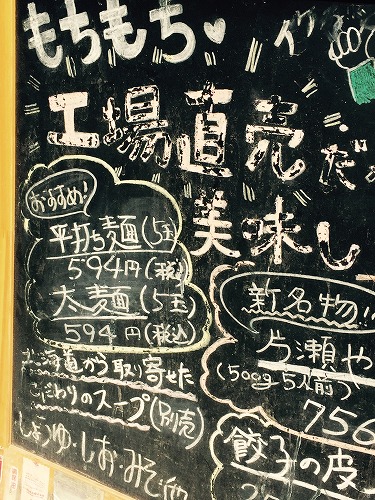 もちもち♥
工場直売だ
美味し
おすすめ!
平打ち麺(5玉)
594円(税込)
太麺(5玉)
594円(税込)
北海道から取り寄せた
こだわりのスープ(別売)
しょうゆ・しお・みそ
新名物!!
片瀬や
(500g 5人前)
756
餃子の皮